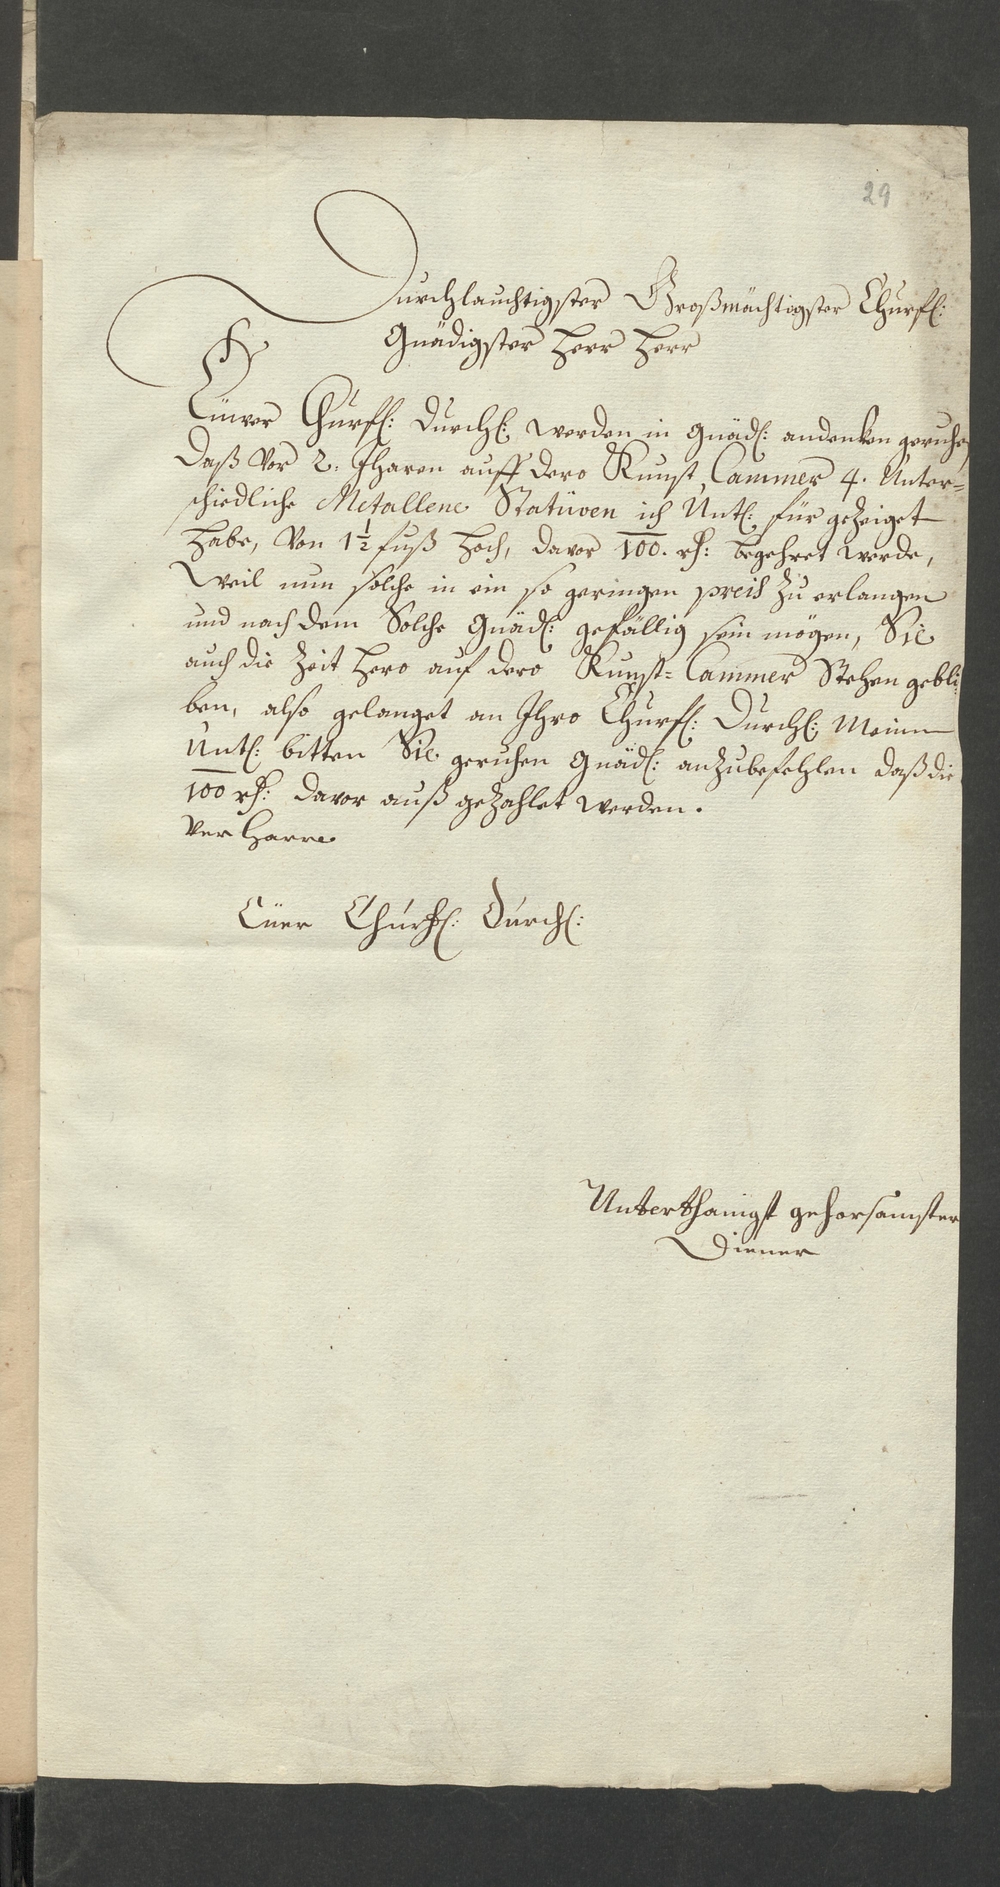 29
Durchlauchtigster Großmächtigster Churfl:
Gnädigster Herr Herr
Eüwer Churfl: Durchl: werden in gnäd: andenken geruhen
Daß Vor 2. Jharen auff dero Kunst Cammer 4. Unter=
schiedliche Metallene Statuven ich Untl: für gezeiget
habe, Von 1½ fuß hoch, davor 100. rh: begehret werde,
Weil nun solche in ein so geringen preis zu erlangen
und nach dem Solche Gnäd: gefällig sein mögen, Sie
auch die Zeit hero auf dero Kunst=Cammer Stehen gebli-
ben, also gelanget an Ihro Churfl: Durchl: Meinn
Untl: bitten Sie geruhen Gnäd: anzubefehlen daß die
100 rh: davor auß gezahlet werden.
Ver harre
Eüer Churfl: Durchl:
Unterthänigst gehorsamster
Diener